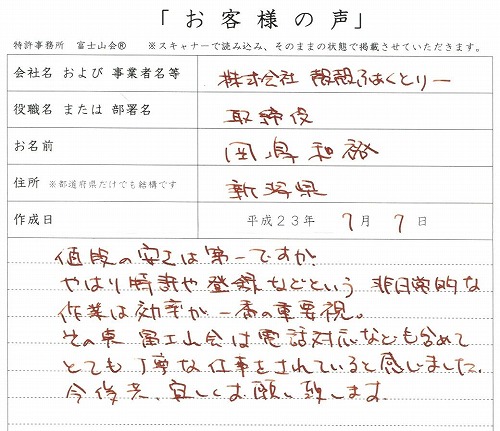 「お客様の声」
特許事務所 富士山会® ※スキャナーで読み込み、そのままの状態で掲載させていただきます。
会社名 および 事業者名等 株式会社 ふぁくとりー
役職名 または 部署名 取締役
お名前 岡島和裕
住所 ※都道府県だけでも結構です 新潟県
作成日 平成23年 7月 7日
値段の安さは第一ですが
やはり特許や登録などという 非日常的な
作業は効率が一番の重要視。
その点 富士山会は電話対応なども含めて
とても丁寧な仕事をされていると感じました。
今後共、宜しくお願い致します。